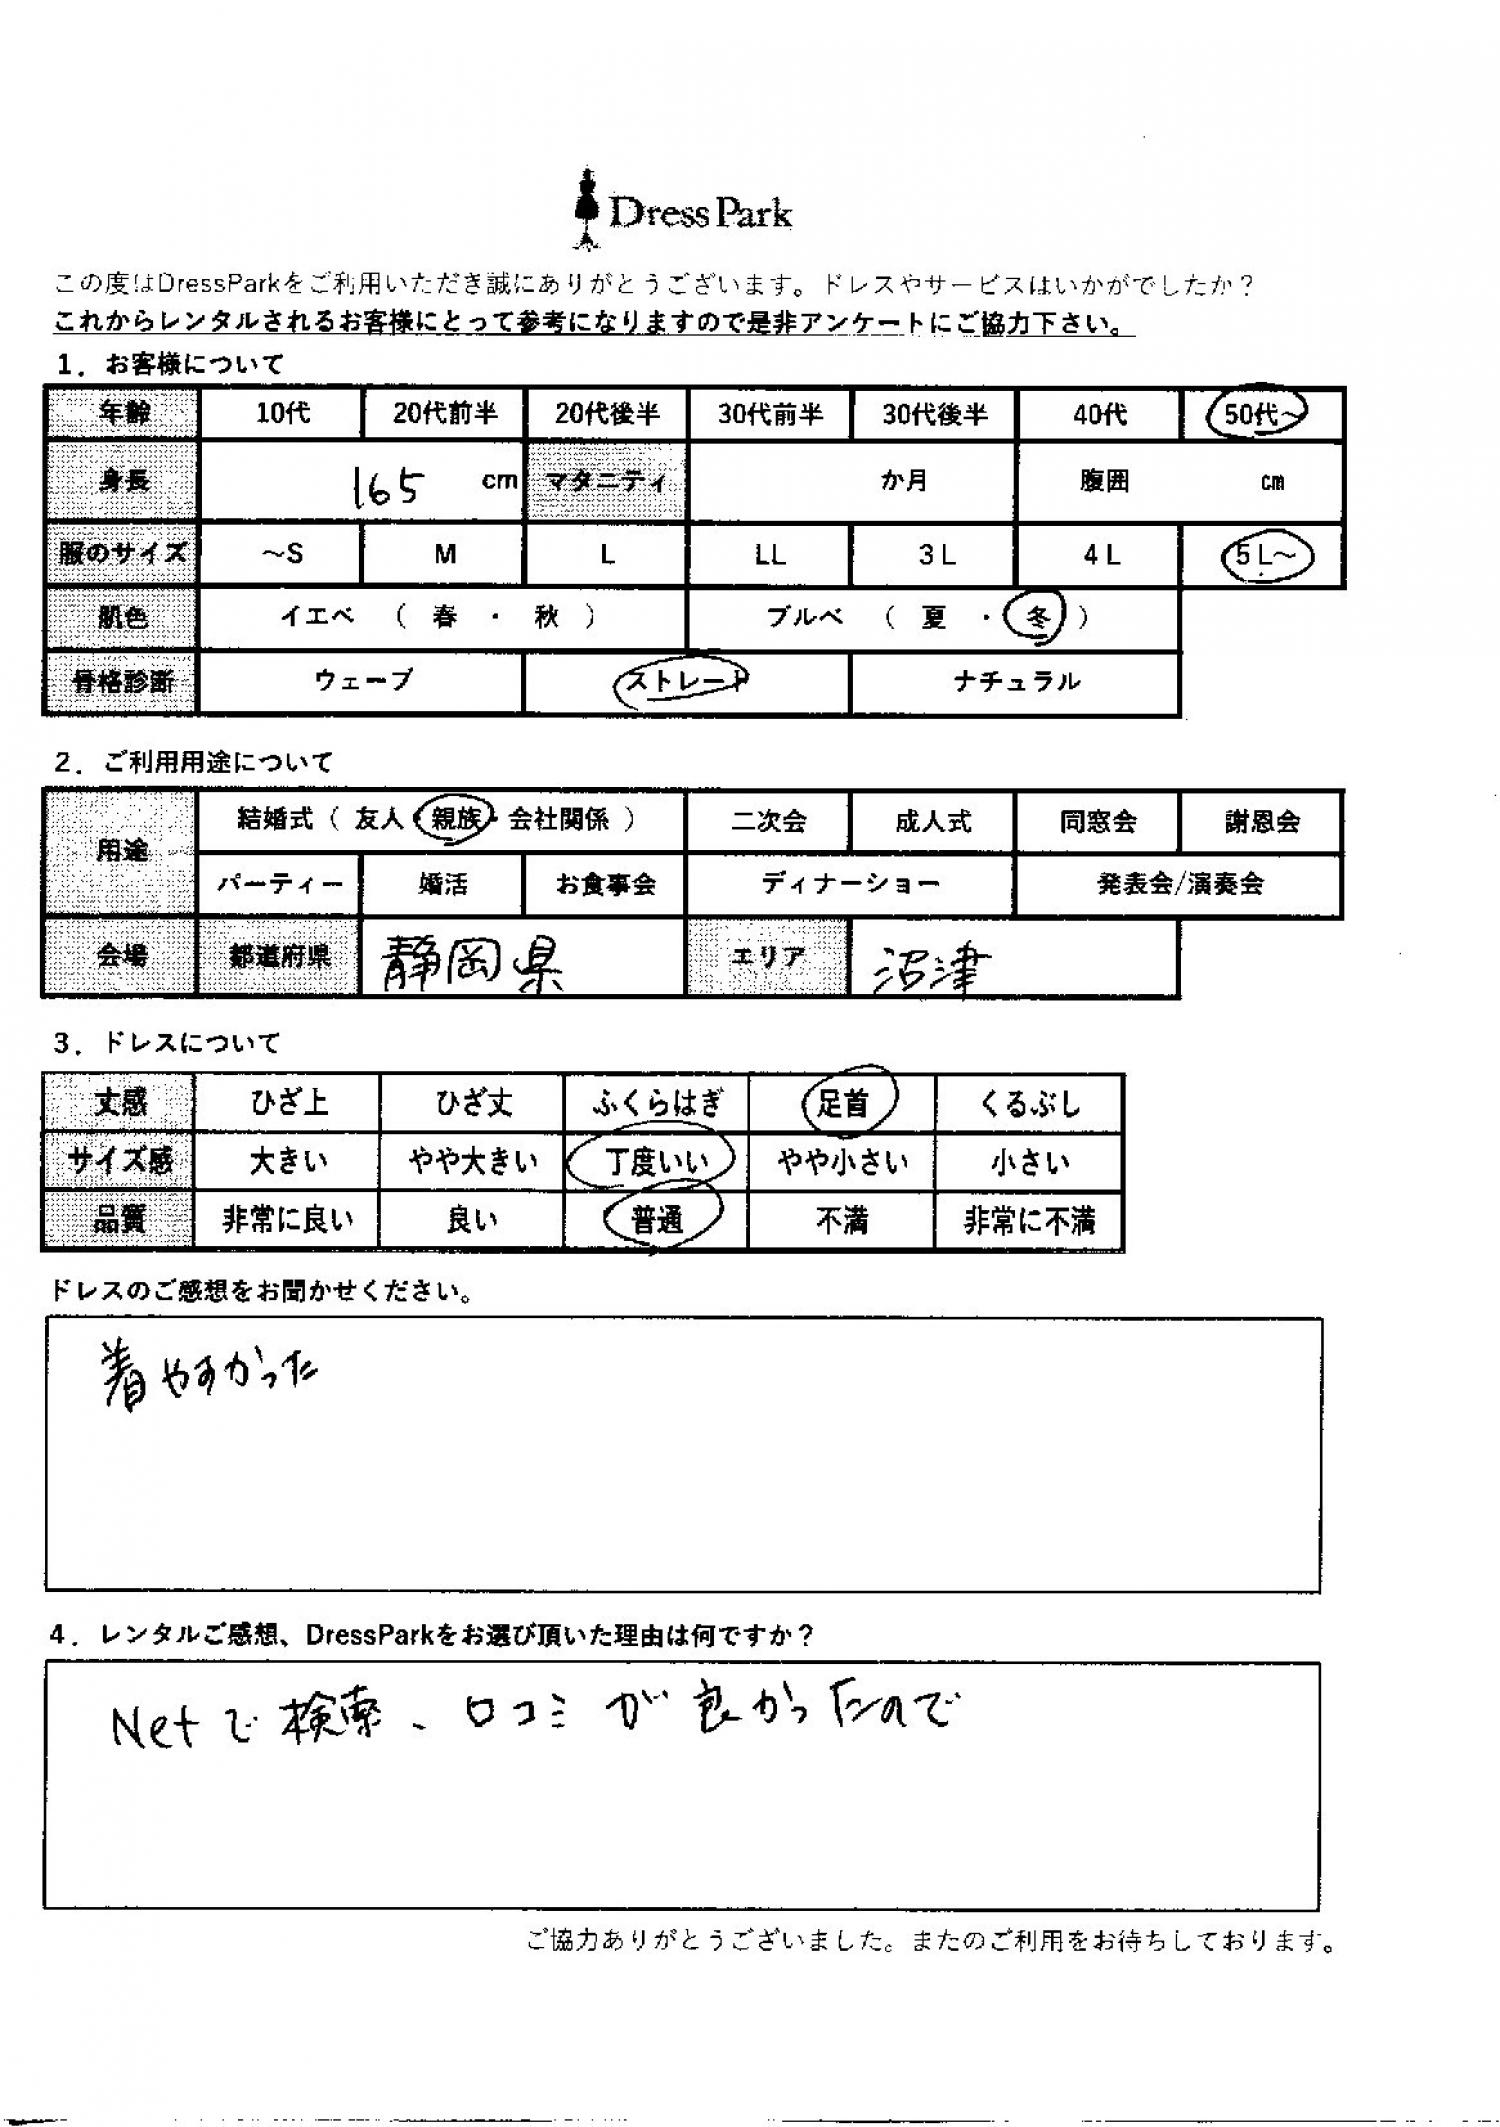 Dress Park
この度はDressParkをご利用いただき誠にありがとうございます。ドレスやサービスはいかがでしたか？
これからレンタルされるお客様にとって参考になりますので是非アンケートにご協力下さい。
1．お客様について
年齢 10代 20代前半 20代後半 30代前半 30代後半 40代 50代～
身長 165 cm マタニティ か月 腹囲 cm
服のサイズ ～S M L LL 3L 4L 5L～
肌色 イエベ （ 春 ・ 秋 ） ブルベ （ 夏 ・ 冬 ）
骨格診断 ウェーブ ストレート ナチュラル
2．ご利用用途について
用途 結婚式（ 友人・親族・会社関係 ） 二次会 成人式 同窓会 謝恩会
パーティー 婚活 お食事会 ディナーショー 発表会/演奏会
会場 都道府県 静岡県 エリア 沼津
3．ドレスについて
丈感 ひざ上 ひざ丈 ふくらはぎ 足首 くるぶし
サイズ感 大きい やや大きい 丁度いい やや小さい 小さい
品質 非常に良い 良い 普通 不満 非常に不満
ドレスのご感想をお聞かせください。
着やすかった
4．レンタルご感想、DressParkをお選び頂いた理由は何ですか？
Netで検索、口コミが良かったので
ご協力ありがとうございました。またのご利用をお待ちしております。